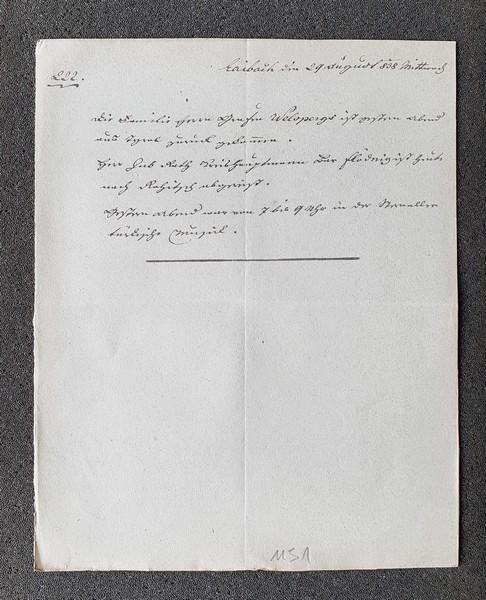 222.
Laibach den 29 August 838 Mittwoch
Die Familie Herrn Grafen Welsperg ist gestern Abend
aus Tyrol zurück gekommen.
Herr Gub Rath Kreishauptmann Bar Flödnig ist heute
nach Rohitsch abgereist.
Gestern Abend war von 7 bis 9 Uhr in der
türkische Musik.
1151